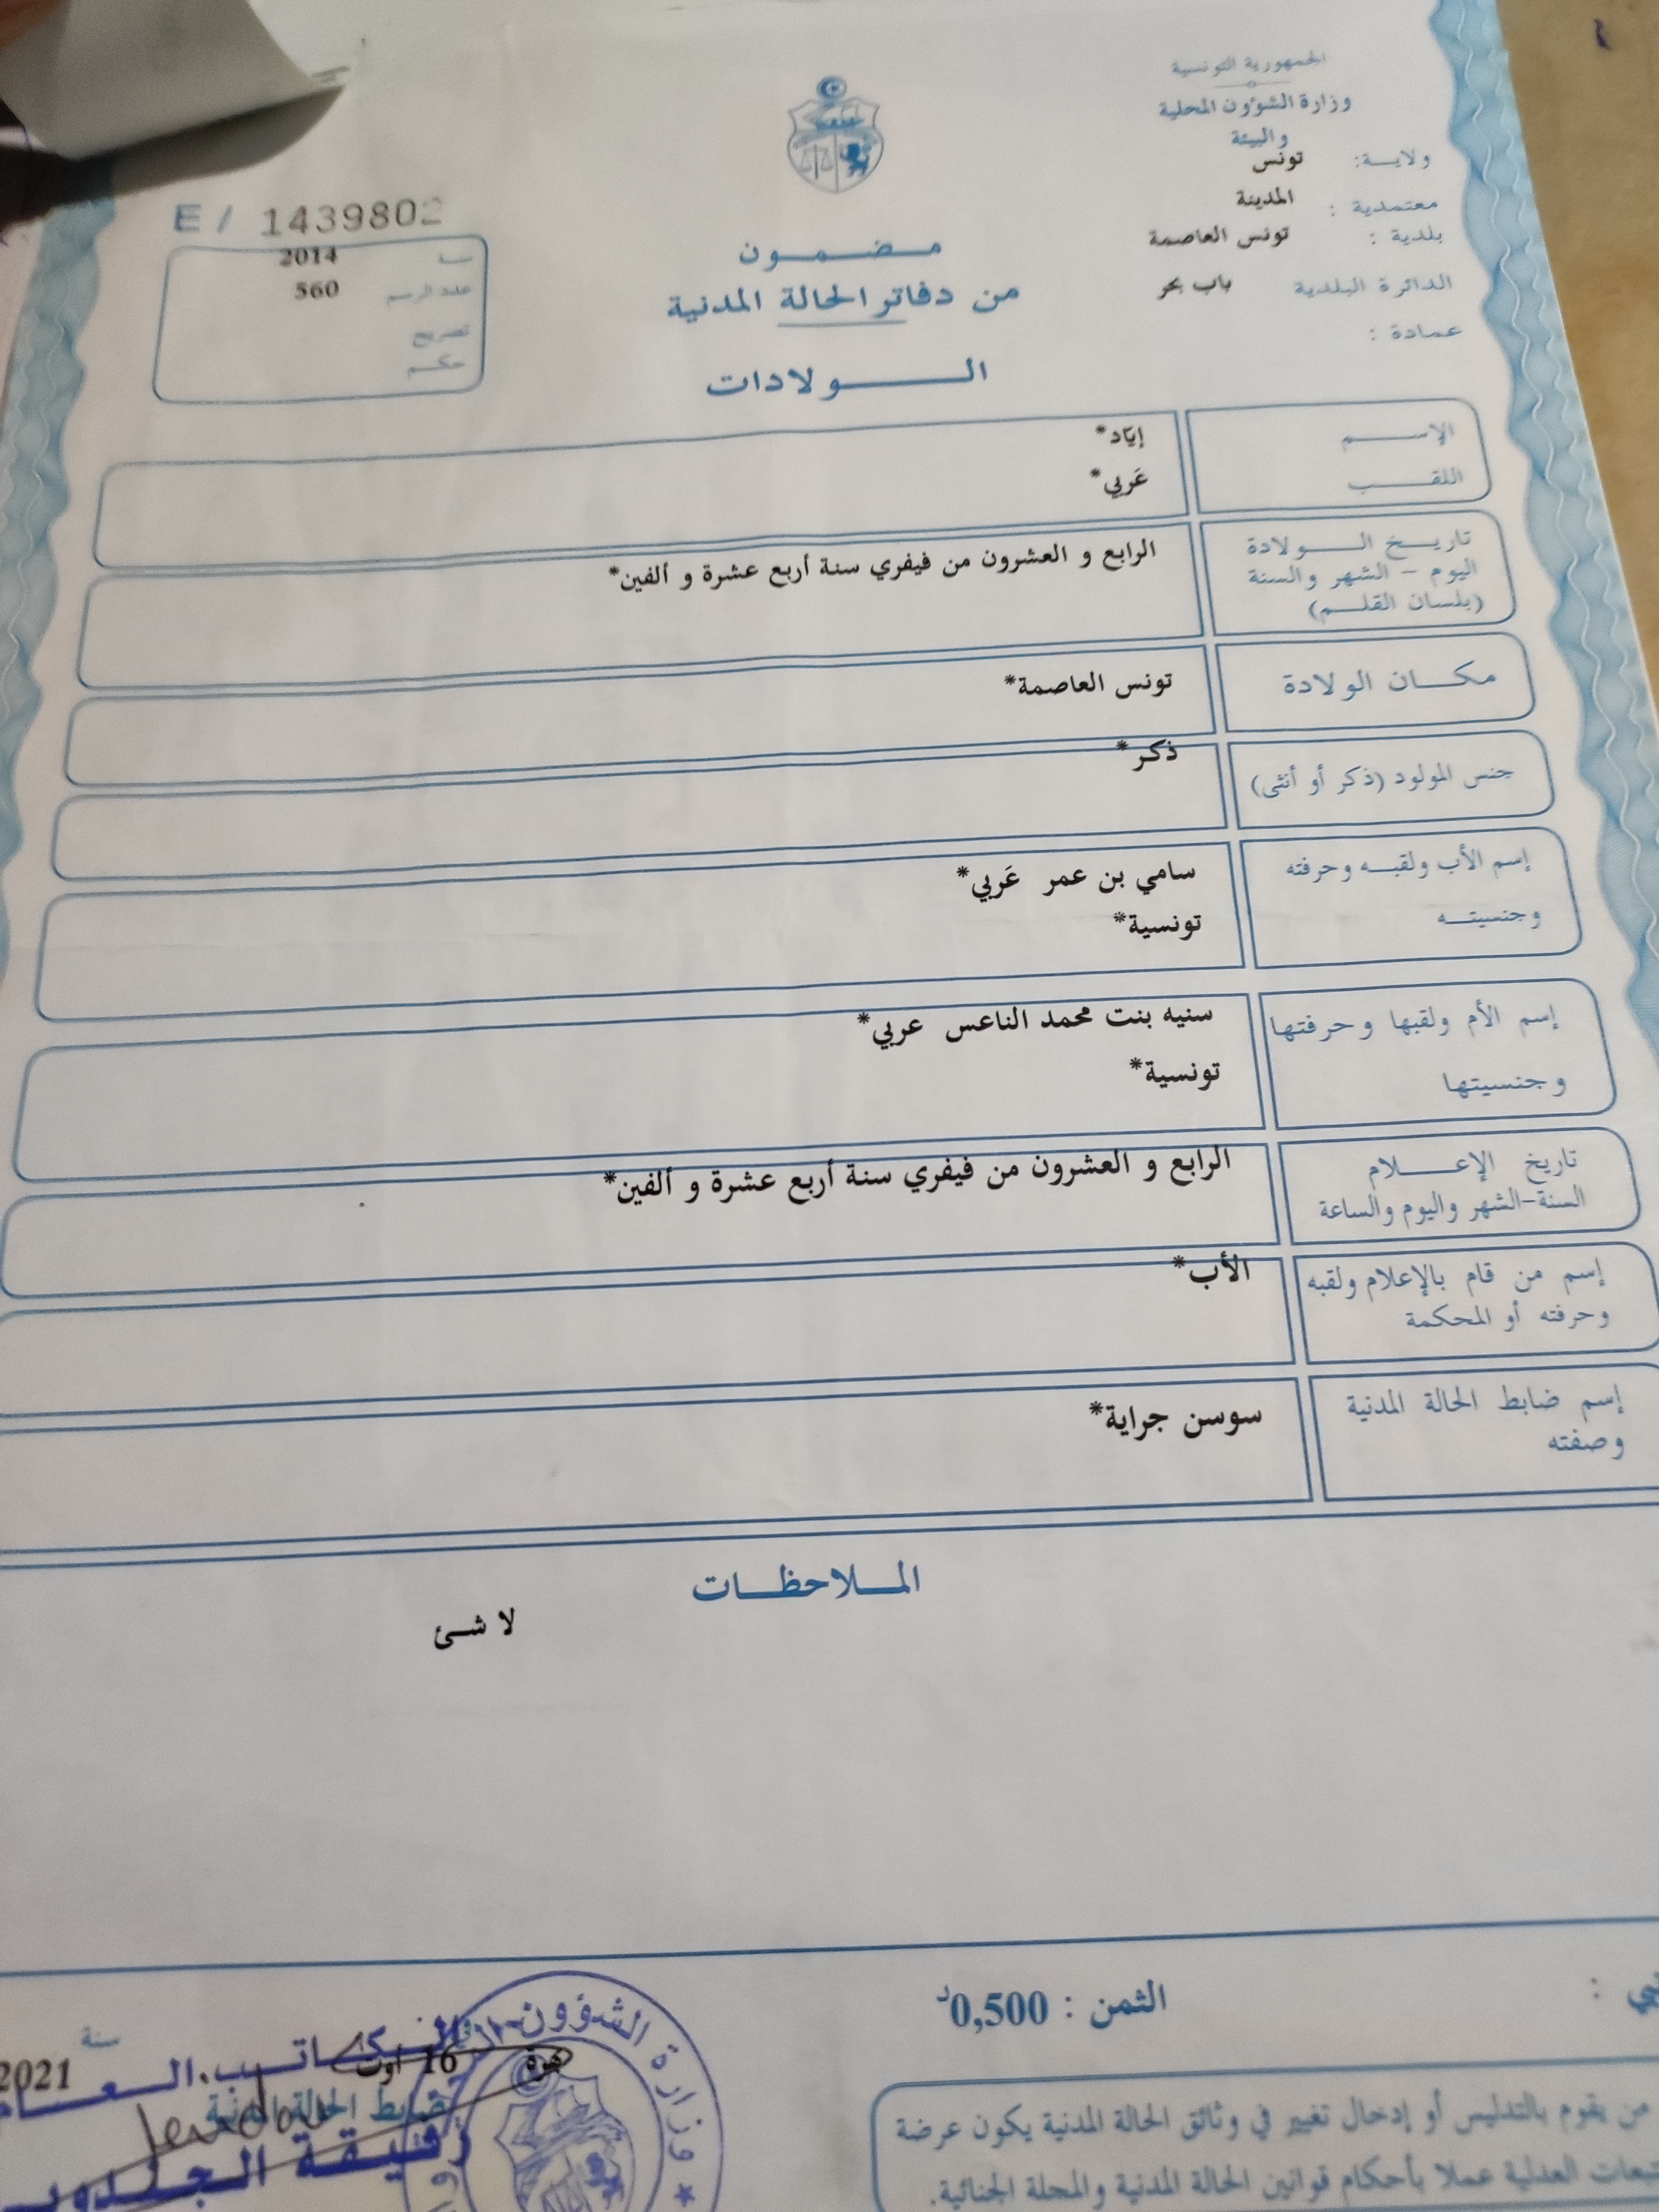 الجمهورية التونسية
وزارة الشؤون المحلية
والبيئة
ولاية: تونس
معتمدية : المدينة
بلدية : تونس العاصمة
الدائرة البلدية باب بحر
عمادة :
E / 1439802
2014
عدد الرسم 560
تصريح
حكم
مضمون
من دفاتر الحالة المدنية
الولادات
الإسم إيّاد*
اللقب عَربي*
تاريخ الولادة
اليوم - الشهر والسنة
(بلسان القلم)
الرابع و العشرون من فيفري سنة أربع عشرة و ألفين*
مكان الولادة تونس العاصمة*
جنس المولود (ذكر أو أنثى) ذكر*
إسم الأب ولقبه وحرفته سامي بن عمر عَربي*
وجنسيته تونسية*
إسم الأم ولقبها وحرفتها سنيه بنت محمد الناعس عربي*
وجنسيتها تونسية*
تاريخ الإعلام
السنة-الشهر واليوم والساعة
الرابع و العشرون من فيفري سنة أربع عشرة و ألفين*
إسم من قام بالإعلام ولقبه
وحرفته أو المحكمة
الأب*
إسم ضابط الحالة المدنية
وصفته
سوسن جراية*
الملاحظات
لا شئ
الثمن : 0,500د
سنة
16 اوت 2021
الكاتب العام
ضابط الحالة المدنية
وزارة الشؤون
من يقوم بالتدليس أو إدخال تغيير في وثائق الحالة المدنية يكون عرضة
العدلية عملا بأحكام قوانين الحالة المدنية والمجلة الجنائية.